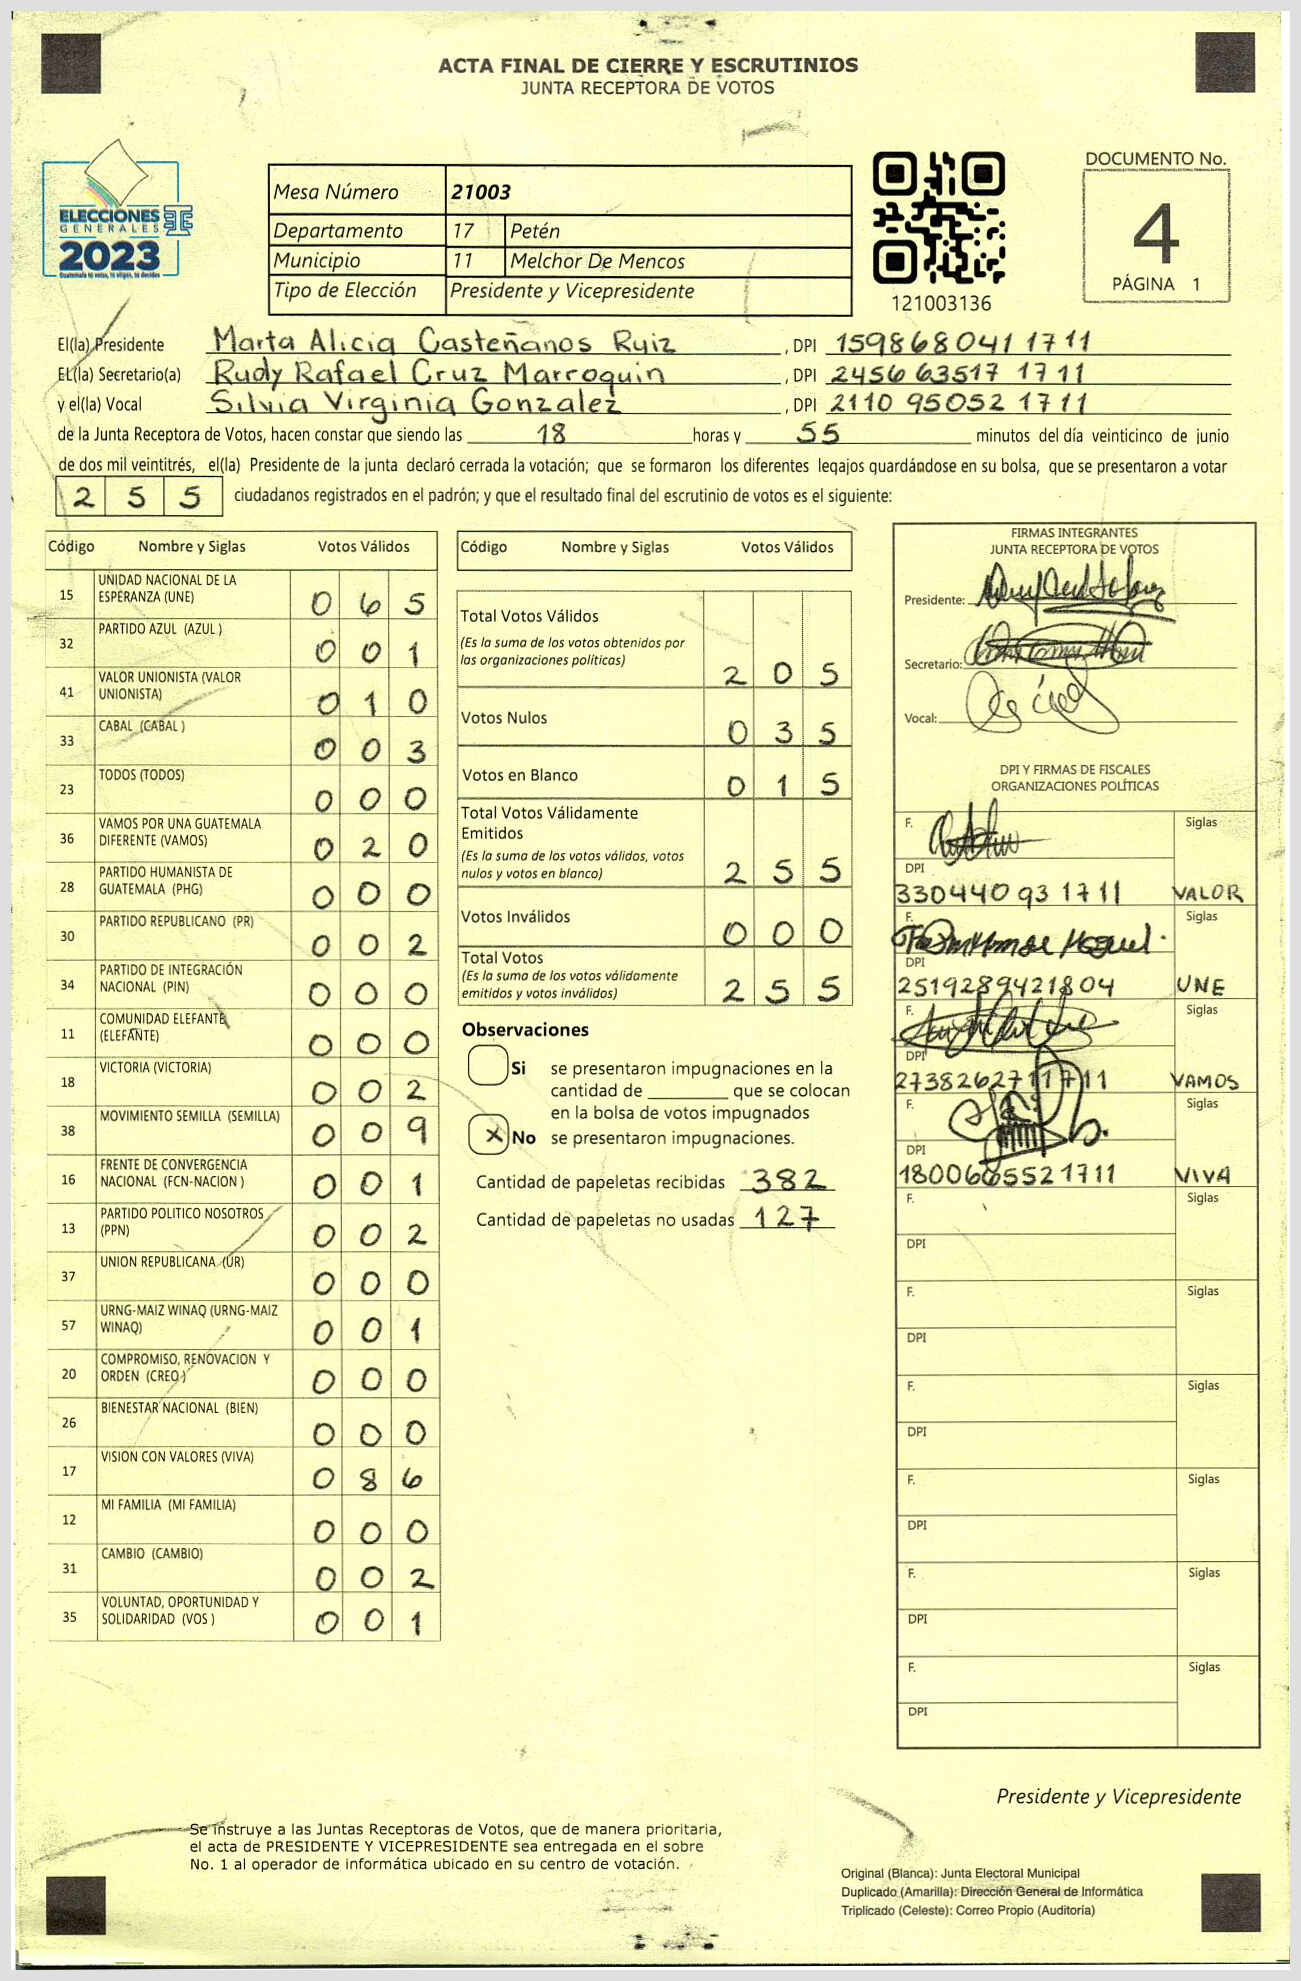 ACTA FINAL DE CIERRE Y ESCRUTINIOS
JUNTA RECEPTORA DE VOTOS
ELECCIONES
GENERALES
2023
Guatemala tú votas, tú eliges, tú decides
Mesa Número 21003
Departamento 17 Petén
Municipio 11 Melchor De Mencos
Tipo de Elección Presidente y Vicepresidente
121003136
DOCUMENTO No.
4
PÁGINA 1
El(la) Presidente Marta Alicia Casteñanos Ruiz, DPI 159868041 1711
EL(la) Secretario(a) Rudy Rafael Cruz Marroquin, DPI 2456 63517 1711
y el(la) Vocal Silvia Virginia Gonzalez, DPI 2110 95052 1711
de la Junta Receptora de Votos, hacen constar que siendo las 18 horas y 55 minutos del día veinticinco de junio
de dos mil veintitrés, el(la) Presidente de la junta declaró cerrada la votación; que se formaron los diferentes legajos guardándose en su bolsa, que se presentaron a votar
255 ciudadanos registrados en el padrón; y que el resultado final del escrutinio de votos es el siguiente:
Código Nombre y Siglas Votos Válidos
15 UNIDAD NACIONAL DE LA ESPERANZA (UNE) 065
32 PARTIDO AZUL (AZUL ) 001
41 VALOR UNIONISTA (VALOR UNIONISTA) 010
33 CABAL (CABAL ) 003
23 TODOS (TODOS) 000
36 VAMOS POR UNA GUATEMALA DIFERENTE (VAMOS) 020
28 PARTIDO HUMANISTA DE GUATEMALA (PHG) 000
30 PARTIDO REPUBLICANO (PR) 002
34 PARTIDO DE INTEGRACIÓN NACIONAL (PIN) 000
11 COMUNIDAD ELEFANTE (ELEFANTE) 000
18 VICTORIA (VICTORIA) 002
38 MOVIMIENTO SEMILLA (SEMILLA) 009
16 FRENTE DE CONVERGENCIA NACIONAL (FCN-NACION ) 001
13 PARTIDO POLITICO NOSOTROS (PPN) 002
37 UNION REPUBLICANA (UR) 000
57 URNG-MAIZ WINAQ (URNG-MAIZ WINAQ) 001
20 COMPROMISO, RENOVACION Y ORDEN (CREO ) 000
26 BIENESTAR NACIONAL (BIEN) 000
17 VISION CON VALORES (VIVA) 086
12 MI FAMILIA (MI FAMILIA) 000
31 CAMBIO (CAMBIO) 002
35 VOLUNTAD, OPORTUNIDAD Y SOLIDARIDAD (VOS ) 001
Código Nombre y Siglas Votos Válidos
Total Votos Válidos
(Es la suma de los votos obtenidos por
las organizaciones políticas) 205
Votos Nulos 035
Votos en Blanco 015
Total Votos Válidamente
Emitidos
(Es la suma de los votos válidos, votos
nulos y votos en blanco) 255
Votos Inválidos 000
Total Votos
(Es la suma de los votos válidamente
emitidos y votos inválidos) 255
Observaciones
Si se presentaron impugnaciones en la
cantidad de ________ que se colocan
en la bolsa de votos impugnados
X No se presentaron impugnaciones.
Cantidad de papeletas recibidas 382
Cantidad de papeletas no usadas 127
FIRMAS INTEGRANTES
JUNTA RECEPTORA DE VOTOS
Presidente:
Secretario:
Vocal:
DPI Y FIRMAS DE FISCALES
ORGANIZACIONES POLÍTICAS
F. Siglas
DPI
330440 93 1711 VALOR
F. Siglas
DPI
2519289421804 UNE
F. Siglas
DPI
2738262711711 VAMOS
F. Siglas
DPI
1800665521711 VIVA
F. Siglas
DPI
F. Siglas
DPI
F. Siglas
DPI
F. Siglas
DPI
F. Siglas
DPI
F. Siglas
DPI
Presidente y Vicepresidente
Se instruye a las Juntas Receptoras de Votos, que de manera prioritaria,
el acta de PRESIDENTE Y VICEPRESIDENTE sea entregada en el sobre
No. 1 al operador de informática ubicado en su centro de votación.
Original (Blanca): Junta Electoral Municipal
Duplicado (Amarilla): Dirección General de Informática
Triplicado (Celeste): Correo Propio (Auditoría)